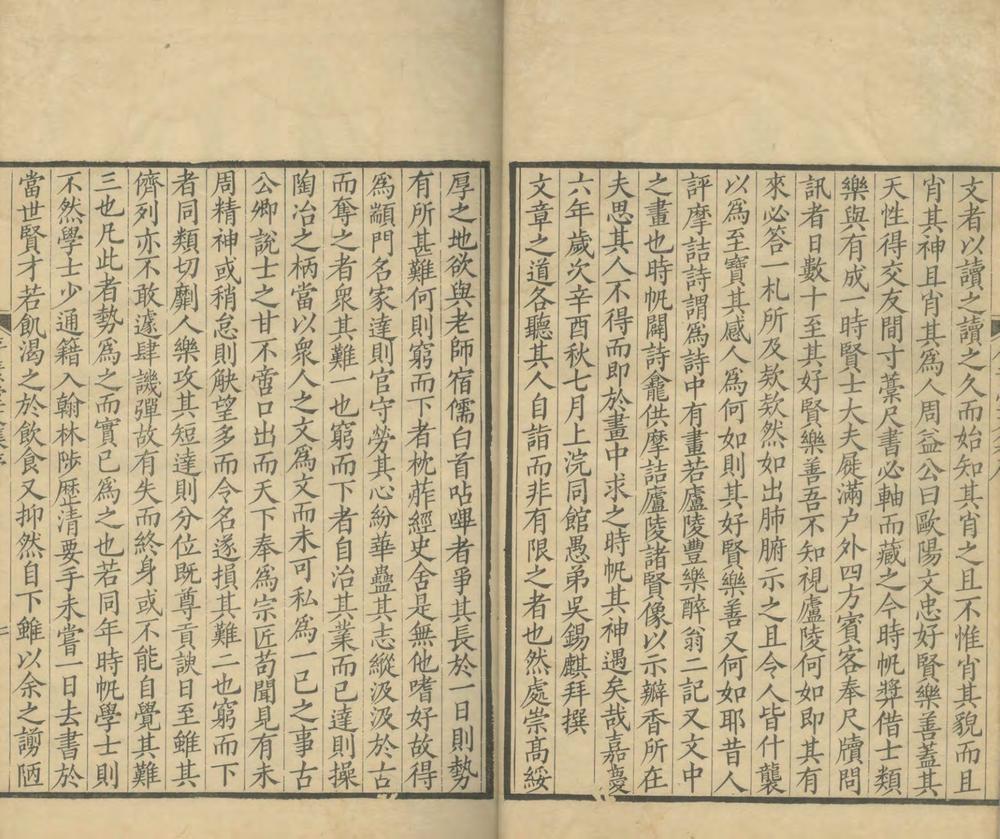 文者以讀之讀之久而始知其肖之且不惟肖其貌而且
肖其神且肖其爲人周益公曰歐陽文忠好賢樂善蓋其
天性得交友間寸藁尺書必軸而藏之今時帆奬借士類
樂與有成一時賢士大夫屣滿户外四方賓客奉尺牘問
訊者日數十至其好賢樂善吾不知視廬陵何如即其有
來必答一札所及欵欵然如出肺腑示之且令人皆什襲
以爲至寶其感人爲何如則其好賢樂善又何如耶昔人
評摩詰詩謂爲詩中有畫若廬陵豐樂醉翁二記又文中
之畫也時帆闢詩龕供摩詰廬陵諸賢像以示瓣香所在
夫思其人不得而即於畫中求之時帆其神遇矣哉嘉慶
六年歲次辛酉秋七月上浣同館愚弟吳錫麒拜撰
文章之道各聽其人自詣而非有限之者也然處崇高綏
厚之地欲與老師宿儒白首呫嗶者爭其長於一日則勢
有所甚難何則窮而下者枕葄經史舍是無他嗜好故得
爲顓門名家達則官守勞其心紛華蠱其志縱汲汲於古
而奪之者衆其難一也窮而下者自治其業而已達則操
陶冶之柄當以衆人之文爲文而未可私爲一已之事古
公卿說士之甘不啻口出而天下奉爲宗匠苟聞見有未
周精神或稍怠則觖望多而令名遂損其難二也窮而下
者同類切劘人樂攻其短達則分位既尊貢諛日至雖其
儕列亦不敢遽肆譏彈故有失而終身或不能自覺其難
三也凡此者勢爲之而實已爲之也若同年時帆學士則
不然學士少通籍入翰林陟歷清要手未嘗一日去書於
當世賢才若飢渴之於飲食又抑然自下雖以余之謭陋